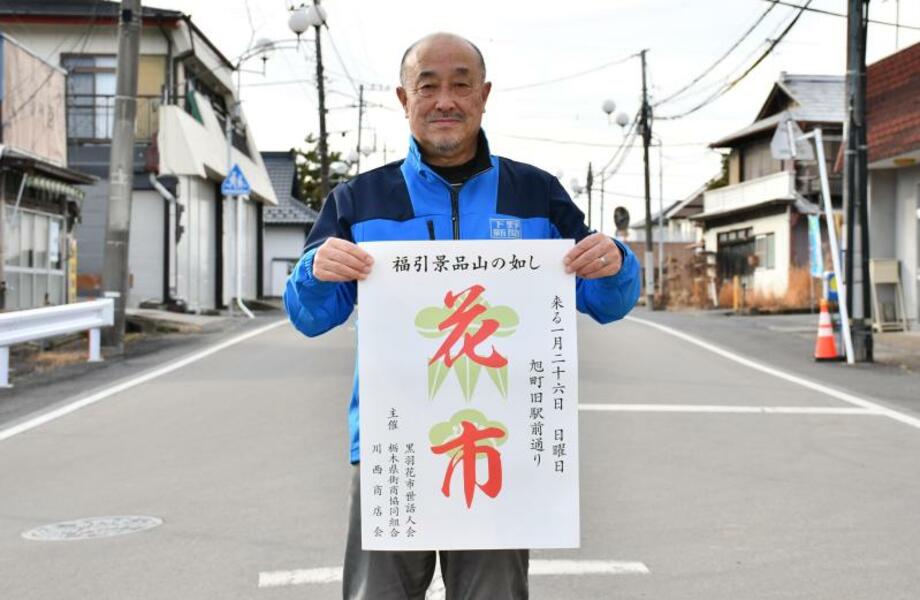 福引景品山の如し
来る一月二十六日　日曜日
旭町旧駅前通り
花市
主催
黒羽花市世話人会
栃木県街商協同組合
川西商店会
下野
新聞